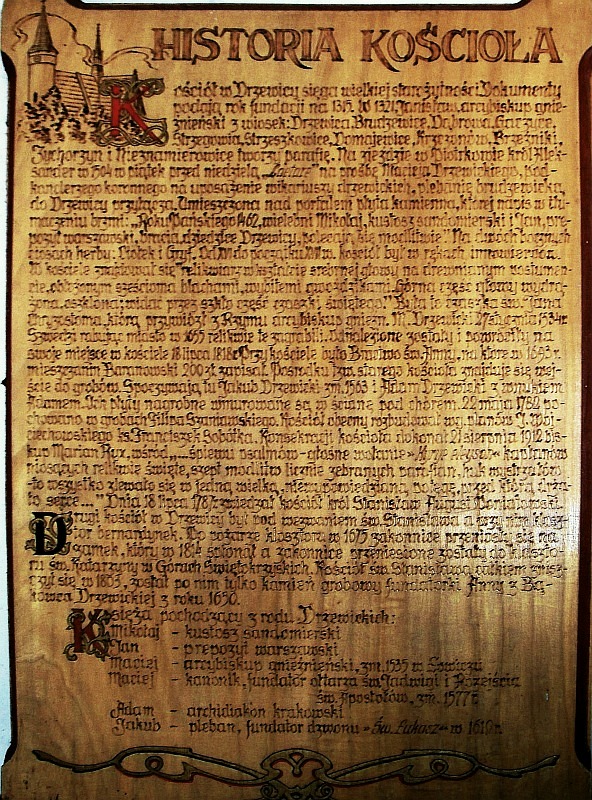 HISTORIA KOŚCIOŁA
Kościół w Drzewicy sięga wielkiej starożytności. Dokumenty
podają rok fundacji na 1315. W 1321 Janisław, arcybiskup gnie-
źnieński z wiosek: Drzewica, Brudzewice, Dąbrowa, Gaczyce,
Strzegowia, Strzeszkowice, Domajewice, Krzczynów, Brzeźniki,
Żychorzyn i Nieznamierowice tworzy parafię. Na zjeździe w Piotrkowie król Alek-
sander w 1504 w piątek przed niedzielą „Laetare" na prośbę Macieja Drzewickiego, pod-
kanclerzego koronnego na uposażenie wikariuszy drzewickich, plebanię brudzewicką,
do Drzewicy przyłącza. Umieszczona nad portalem płyta kamienna, której napis w tłu-
maczeniu brzmi: „Roku Pańskiego 1462, wielebni Mikołaj, kustosz sandomierski i Jan, pre-
pozyt warszawski, bracia, dziedzice Drzewicy, polecają się modlitwie." Na dwóch bocznych
ciosach herby: Ciołek i Gryf. Od XVI do początku XVII w. kościół był w rękach innowierców.
W kościele znajdował się „relikwiarz w kształcie srebrnej głowy na drewnianym postumen-
cie, obłożonym sześcioma blachami, wybitemi gwoździkami. Górna część głowy wydrą-
żona, oszklona; widać przez szkło część czaszki świętego." Była to czaszka św. Jana
Chryzostoma, którą przywiózł z Rzymu arcybiskup gniezn. M. Drzewicki 27 stycznia 1534 r.
Szwedzi rabując miasto w 1655 relikwie te zagrabili. Odnalezione zostały i powróciły na
swoje miejsce w kościele 18 lipca 1818 r. Przy kościele było Bractwo św. Anny, na które w 1693 r.
mieszczanin Baranowski 200 zł zapisał. Pośrodku tzw. starego kościoła znajduje się wej-
ście do grobów. Spoczywają tu Jakub Drzewicki zm. 1563 i Adam Drzewicki z wnykiem
Adamem. Ich płyty nagrobne wmurowane są w ścianę pod chórem. 22 maja 1782 po-
chowano w grobach Filipa Szaniawskiego. Kościół obecny rozbudował wg. planów J. Woj-
ciechowskiego ks. Franciszek Sobótka. Konsekracji kościoła dokonał 21 sierpnia 1912 bis-
kup Marian Ryx, wśród „...śpiewu psalmów - głośne wołanie »Kyrye elyson« kapłanów
niosących relikwie święte, szept modlitw licznie zebranych parafian, huk wystrzałów
- to wszystko zlewało się w jedną wielką, niewypowiedzianą, potęgę, przed którą drża-
ło serce..." Dnia 18 lipca 1787 zwiedzał kościół król Stanisław August Poniatowski.
Drugi kościół w Drzewicy był pod wezwaniem św. Stanisława a przy nim klasz-
tor bernardynek. Po pożarze klasztoru w 1675 zakonnice przeniosły się na
zamek, który w 1814 spłonął a zakonnice przeniesione zostały do klaszto-
ru św. Katarzyny w Górach Świętokrzyskich. Kościół św. Stanisława całkiem znisz-
czył się w 1803, został po nim tylko kamień grobowy fundatorki Anny z Bą-
kowca Drzewickiej z roku 1650.
Księża pochodzący z rodu Drzewickich:
Mikołaj - kustosz sandomierski
Jan - prepozyt warszawski
Maciej - arcybiskup gnieźnieński, zm. 1535 w Łowiczu
Maciej - kanonik, fundator ołtarza św. Jadwigi i Rozejścia
św. Apostołów, zm. 1577 r.
Adam - archidiakon krakowski
Jakub - pleban, fundator dzwonu »Św. Łukasz« w 1619 r.